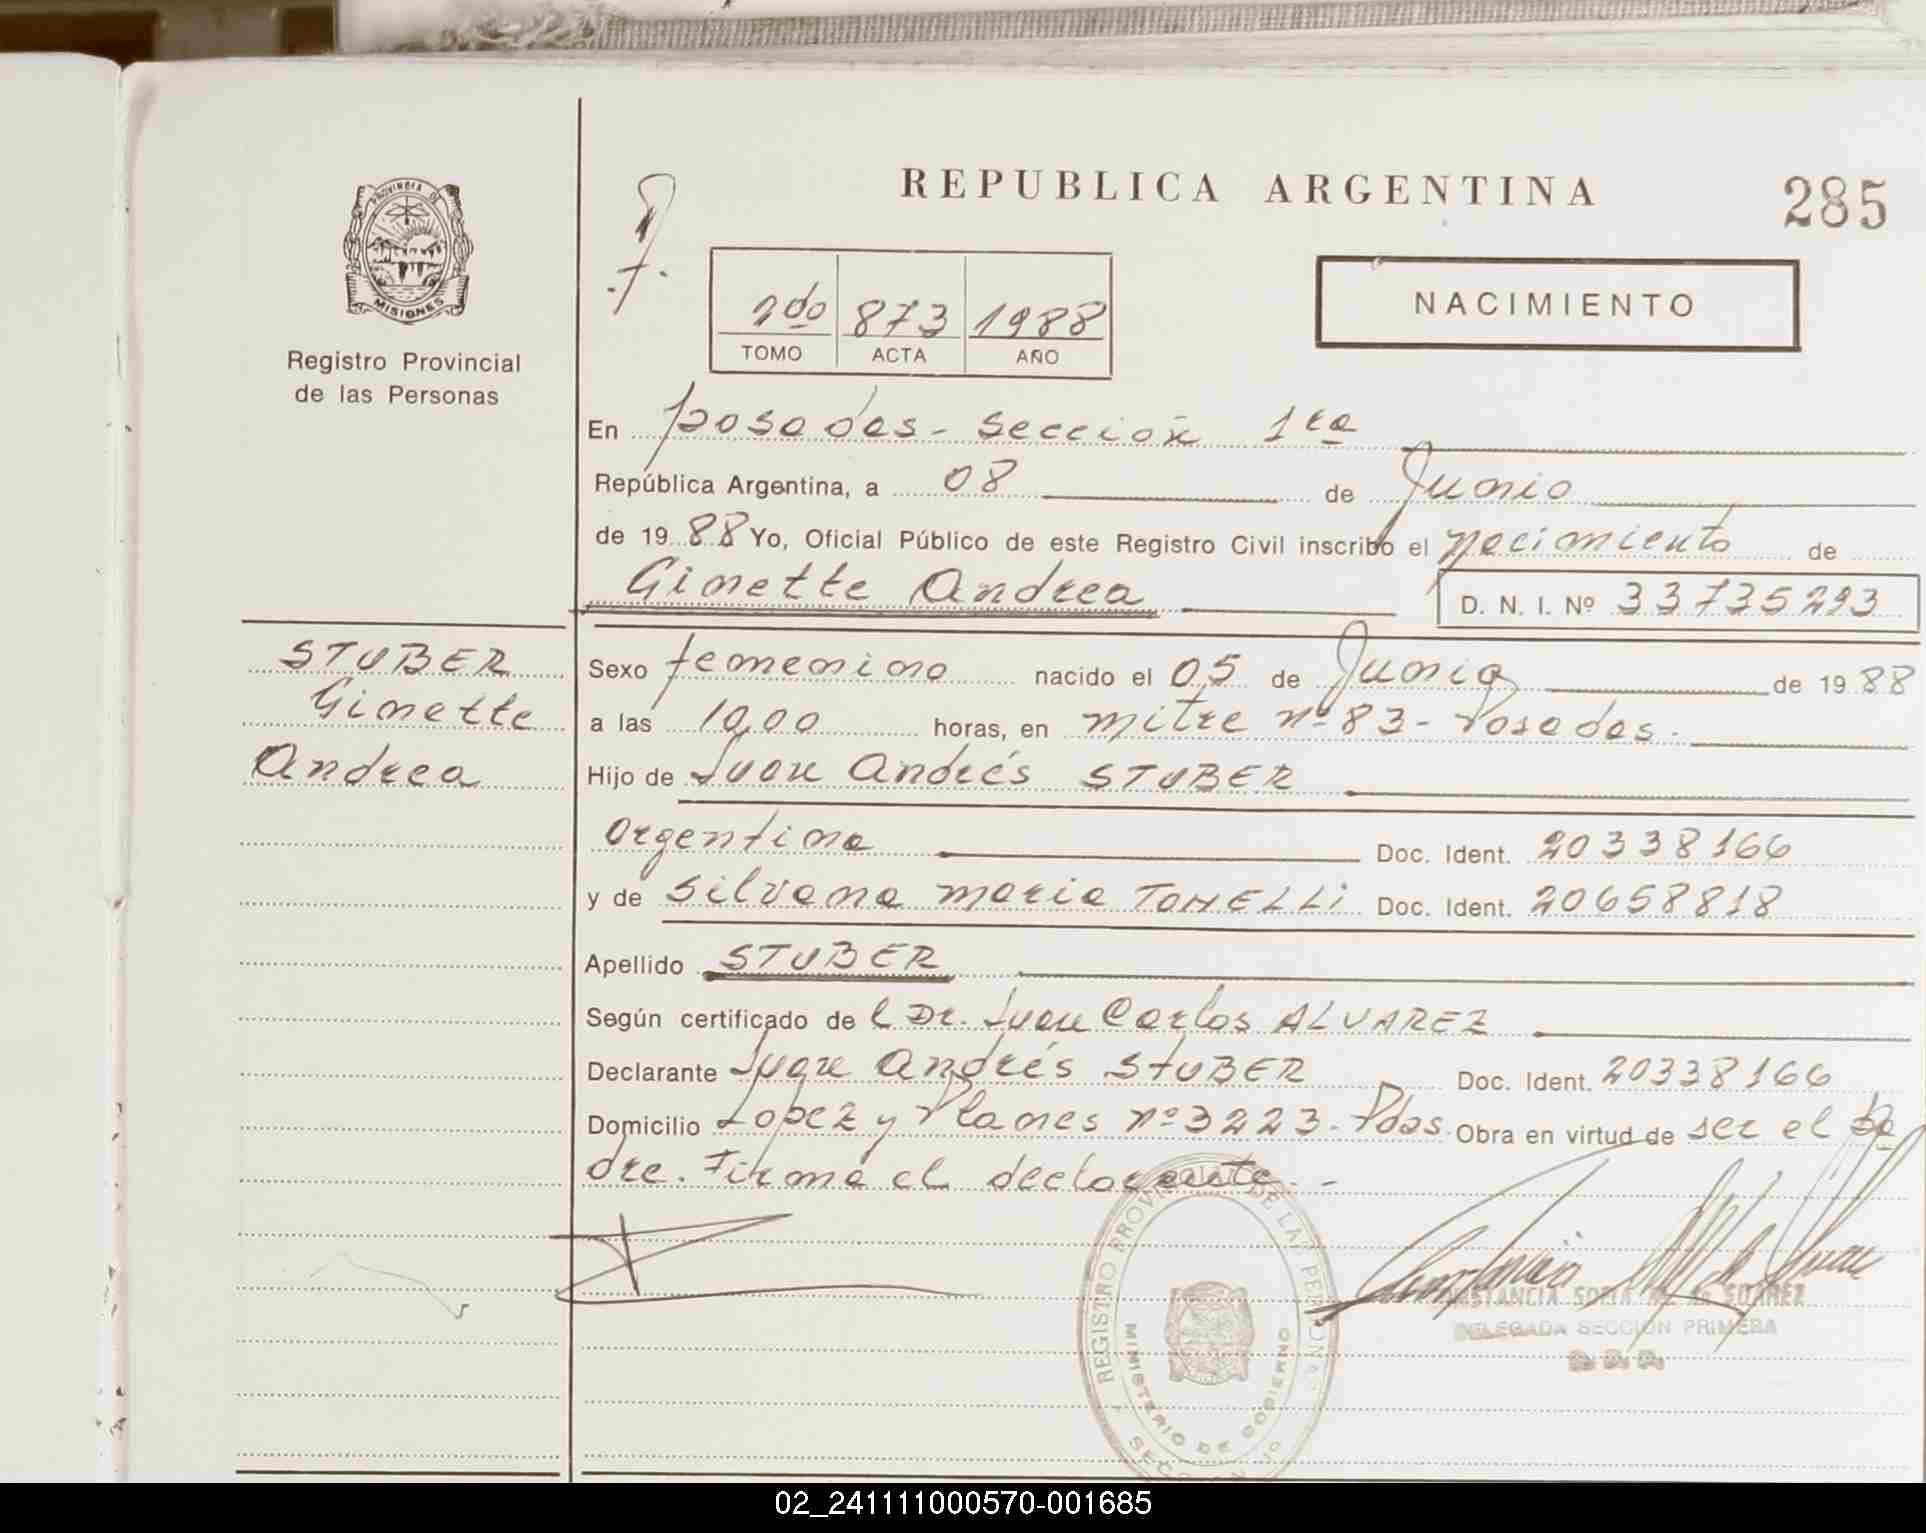 REPUBLICA ARGENTINA
285
PROVINCIA DE
MISIONES
Registro Provincial
de las Personas
2do 873 1988
TOMO ACTA AÑO
NACIMIENTO
En Posadas - Sección 1ra
República Argentina, a 08 de Junio
de 1988 Yo, Oficial Público de este Registro Civil inscribo el nacimiento de
Ginette Andrea
D. N. I. Nº 33735293
STUBER
Ginette
Andrea
Sexo femenino nacido el 05 de Junio de 1988
a las 10,00 horas, en mitre nº 83 - Posadas.
Hijo de Juan Andrés STUBER
Argentina Doc. Ident. 20338166
y de Silvana María TONELLI Doc. Ident. 20658818
Apellido STUBER
Según certificado de l Dr. Juan Carlos ALVAREZ
Declarante Juan Andrés STUBER Doc. Ident. 20338166
Domicilio Lopez y Planes nº 3223 - Pdas. Obra en virtud de ser el pa
dre. Firma el declarante. -
REGISTRO PROVINCIAL DE LAS PERSONAS
MINISTERIO DE GOBIERNO
DELEGADA SECCION PRIMERA
02_241111000570-001685